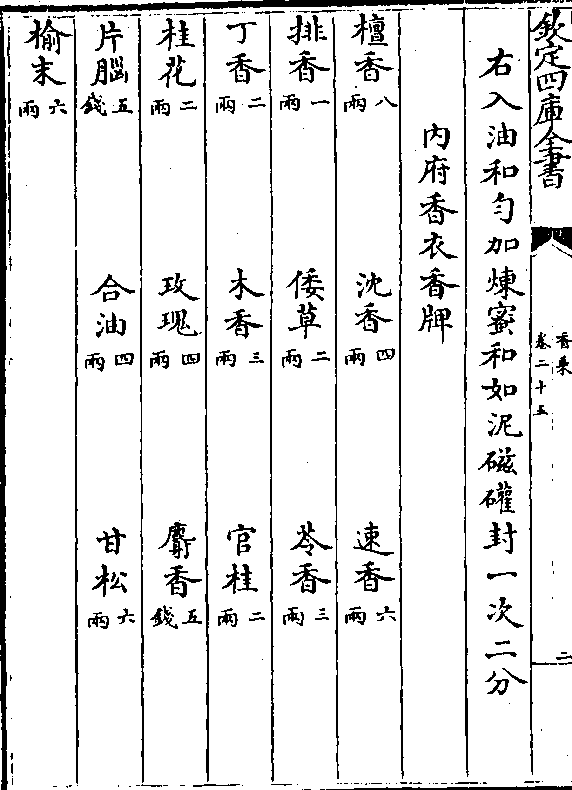 欽定四庫全書
香乗
卷二十五
二
右入油和勻加煉蜜和如泥磁罐封一次二分
內府香衣香牌
檀香八兩 沈香四兩 速香六兩
排香一兩 倭草二兩 苓香三兩
丁香二兩 木香三兩 官桂二兩
桂花二兩 玫瑰四兩 麝香五錢
片腦五錢 合油四兩 甘松六兩
榆末六兩